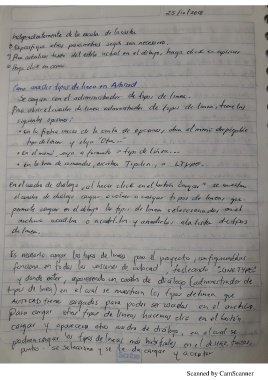 independientemente de la escala de la
5) Especifique otros parámetros según sea necesario.
haga click en aplicar
Haga click en cerrar
Como añadir tipos de línea en Autocad
Se cargan con el administrador de tipos de línea.
Para abrir el cuadro de administrador de tipos de línea, tiene las
siguientes opciones:
• En la ficha inicio de la cinta de opciones, abra el menú desplegable
tipo de línea y elija "Otro..."
• En el menú, vaya a formato → tipo de línea...
• En la línea de comandos, escriba Tipolin, o LTYPE.
En el cuadro de diálogo, al hacer click en el botón Cargar" se muestra
el cuadro de diálogo cargar o volver a cargar tipos de línea que
permite cargar en el dibujo los tipos de línea seleccionados
archivo acadiso o acadlt.lin y añadirlos a la lista de tipos
de línea.
Es necesario cargar los tipos de línea para el proyecto,
funciona en todas las versiones de autocad, tecleando "LINETYPE"
y dando enter, aparecerá un cuadro de diálogo (administrador de
tipos de línea) en el cual se muestran los tipos de línea que
AUTOCAD tiene cargados para poder ser usados en el archivo
Para cargar otros tipos de líneas hacemos clic en el botón
cargar y aparecerá otro cuadro de diálogo, en el cual se
podrán cargar los tipos de líneas más habituales en el dibujo
puntos se selecciona y se cargar y aceptar
Scanned by CamScanner